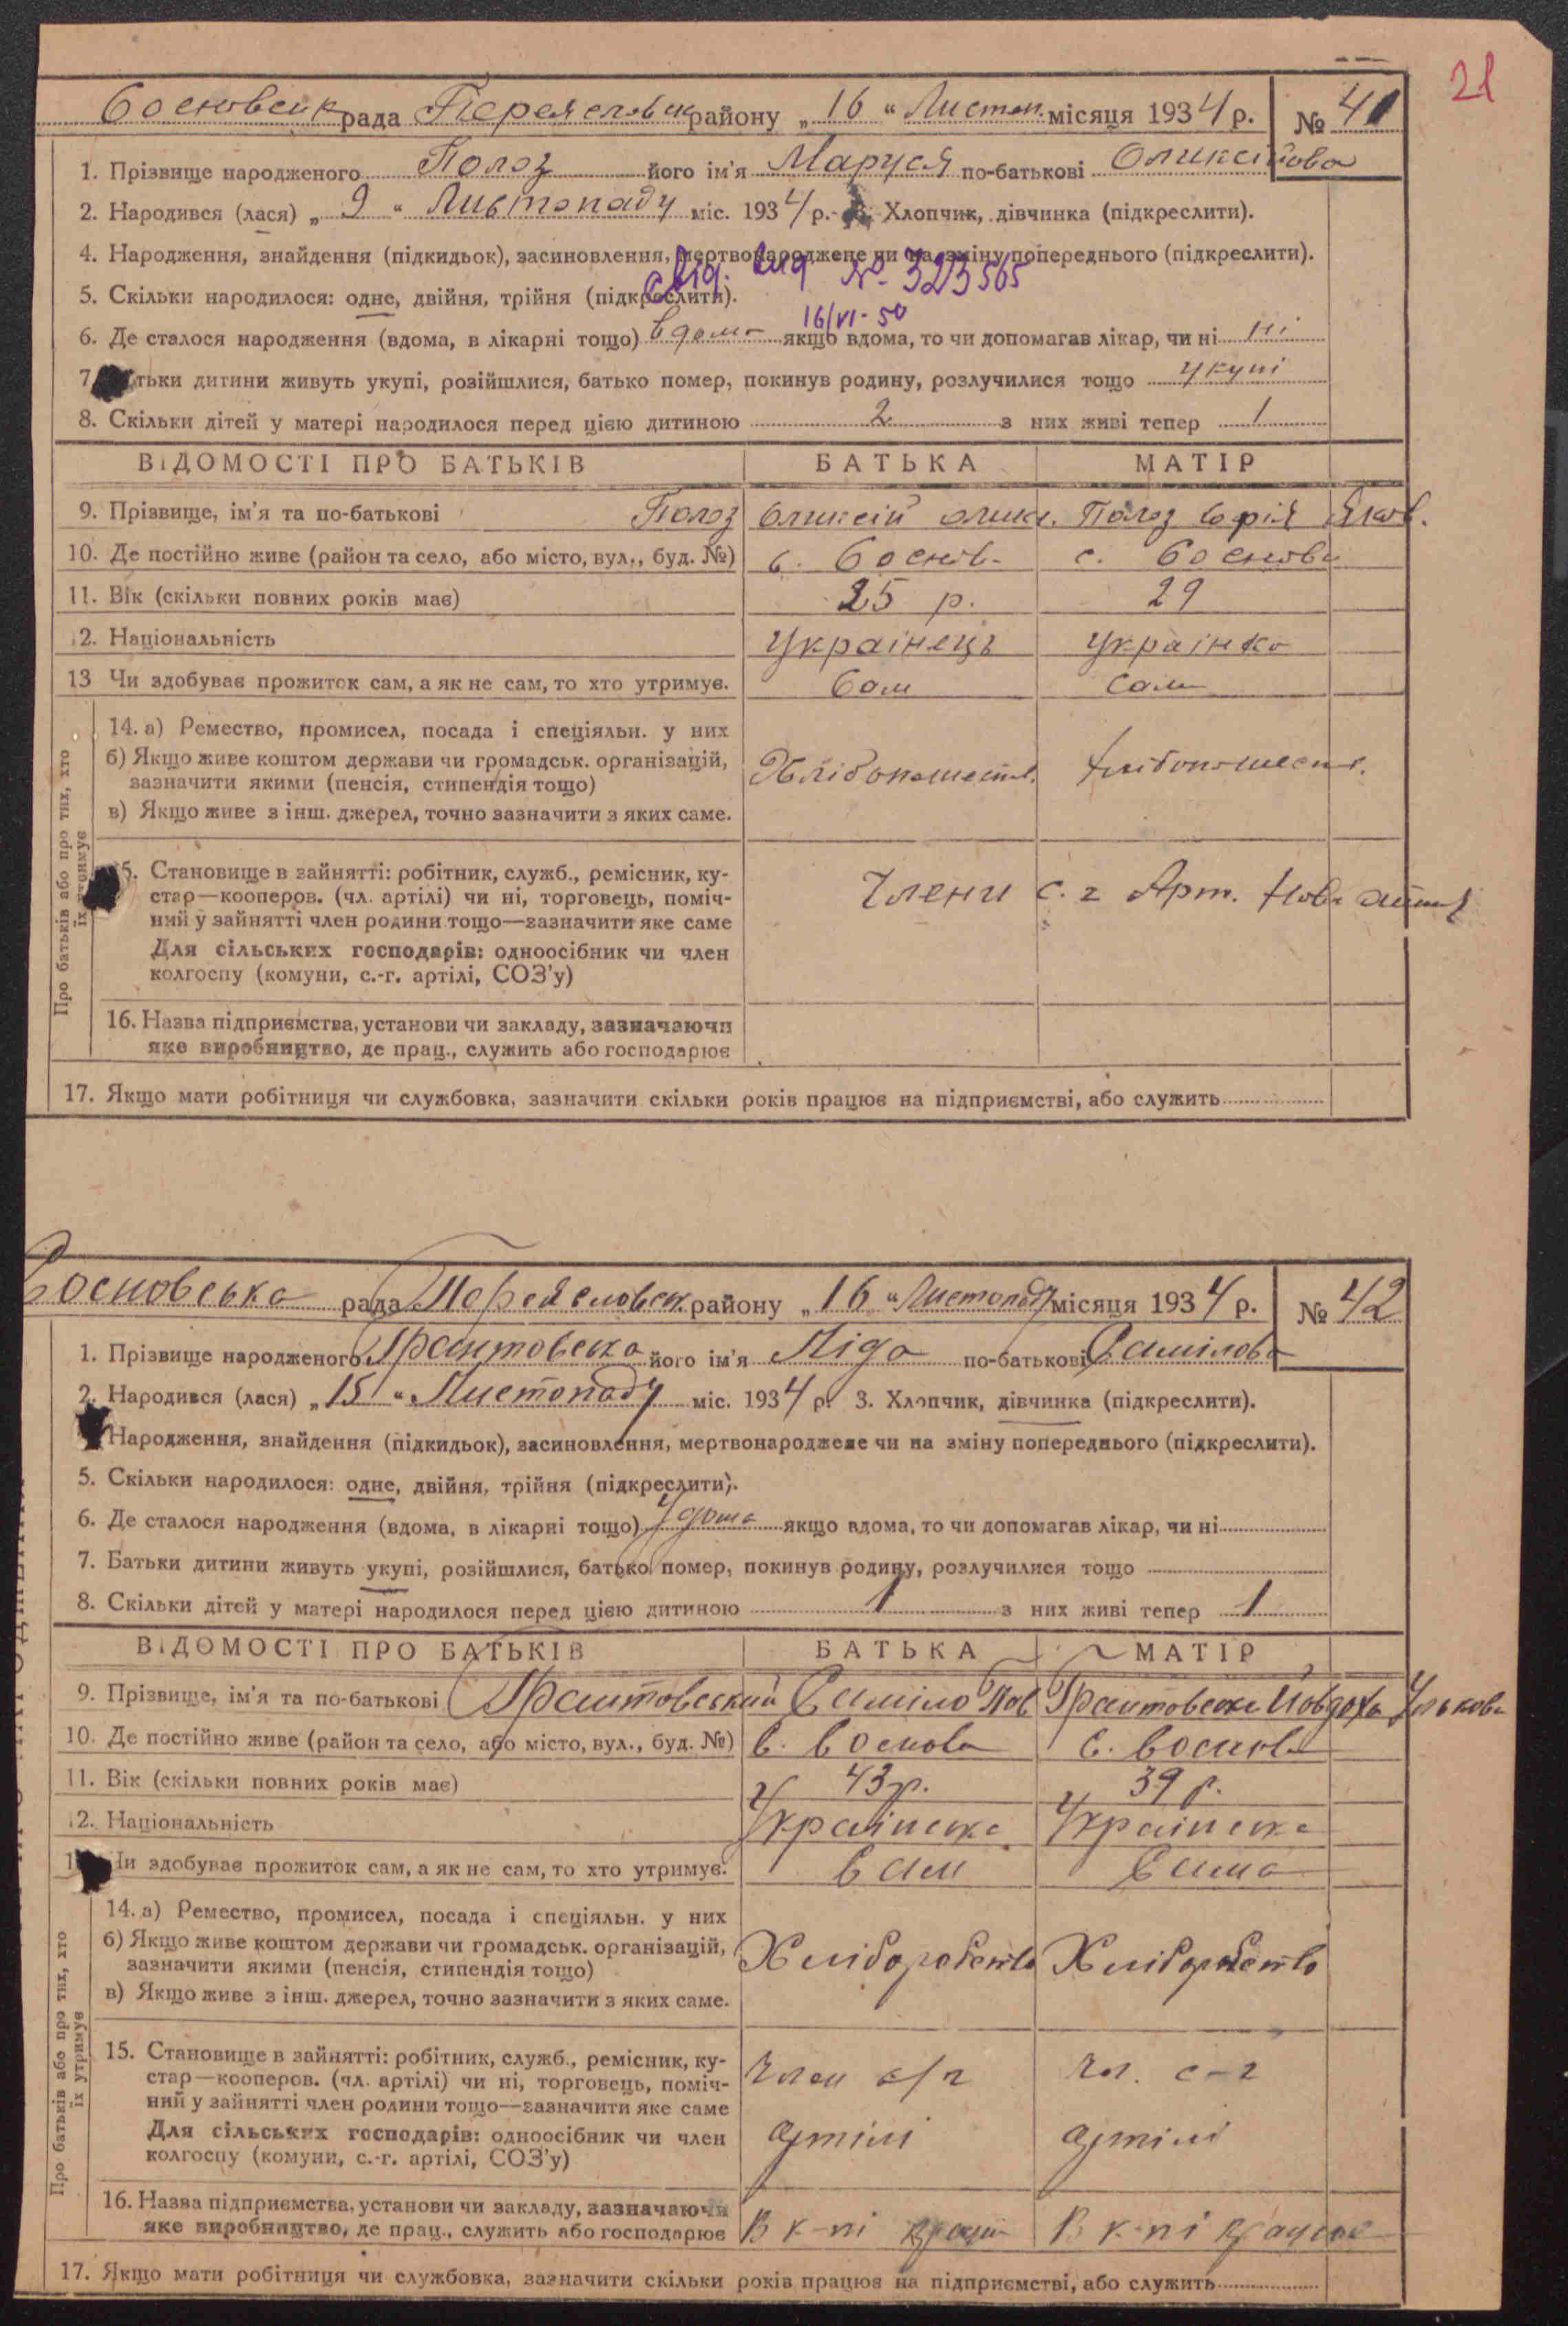 21
Сосновськ рада Переяславськ району „ 16 “ Листоп. місяця 1934 р. № 41
1. Прізвище народженого Полоз його ім'я Маруся по-батькові Оликсійова
2. Народився (лася) „ 9 “ Листопаду міс. 1934 р.- 3. Хлопчик, дівчинка (підкреслити).
4. Народження, знайдення (підкидьок), засиновлення, мертвонароджене чи на зміну попереднього (підкреслити).
свід. вид № 323565
5. Скільки народилося: одне, двійня, трійня (підкреслити).
16/VI-50
6. Де сталося народження (вдома, в лікарні тощо) вдома якщо вдома, то чи допомагав лікар, чи ні ні
7. тьки дитини живуть укупі, розійшлися, батько помер, покинув родину, розлучилися тощо укупі
8. Скільки дітей у матері народилося перед цією дитиною 2 з них живі тепер 1
ВІДОМОСТІ ПРО БАТЬКІВ БАТЬКА МАТІР
9. Прізвище, ім'я та по-батькові Полоз Оликсій Оликс. Полоз Софія Яков.
10. Де постійно живе (район та село, або місто, вул., буд. №) с. Соснов. с. Соснова
11. Вік (скільки повних років має) 25 р. 29
12. Національність Українець Українка
13 Чи здобуває прожиток сам, а як не сам, то хто утримує. Сам Сама
Про батьків або про тих, хто їх утримує
14. а) Ремество, промисел, посада і спеціяльн. у них
б) Якщо живе коштом держави чи громадськ. організацій,
зазначити якими (пенсія, стипендія тощо)
в) Якщо живе з інш. джерел, точно зазначити з яких саме.
15. Становище в зайнятті: робітник, служб., ремісник, ку-
стар—кооперов. (чл. артілі) чи ні, торговець, поміч-
ний у зайнятті член родини тощо—зазначити яке саме
Члени с. г Арт.
Для сільських господарів: одноосібник чи член
колгоспу (комуни, с.-г. артілі, СОЗ'у)
16. Назва підприємства, установи чи закладу, зазначаючи
яке виробництво, де прац., служить або господарює
17. Якщо мати робітниця чи службовка, зазначити скільки років працює на підприємстві, або служить
Сосновська рада Переяславськ району „ 16 “ Листопаду місяця 1934 р. № 42
1. Прізвище народженого його ім'я Ліда по-батькові Самілова
2. Народився (лася) „ 15 “ Листопаду міс. 1934 р. 3. Хлопчик, дівчинка (підкреслити).
Народження, знайдення (підкидьок), засиновлення, мертвонароджене чи на зміну попереднього (підкреслити).
5. Скільки народилося: одне, двійня, трійня (підкреслити).
6. Де сталося народження (вдома, в лікарні тощо) Удома якщо вдома, то чи допомагав лікар, чи ні
7. Батьки дитини живуть укупі, розійшлися, батько помер, покинув родину, розлучилися тощо
8. Скільки дітей у матері народилося перед цією дитиною 1 з них живі тепер 1
ВІДОМОСТІ ПРО БАТЬКІВ БАТЬКА МАТІР
9. Прізвище, ім'я та по-батькові Саміло Пав
10. Де постійно живе (район та село, або місто, вул., буд. №) с. Соснова с. Соснова
11. Вік (скільки повних років має) 43 р. 39 р.
12. Національність Українська Українська
Чи здобуває прожиток сам, а як не сам, то хто утримує. Сам Сама
Про батьків або про тих, хто їх утримує
14. а) Ремество, промисел, посада і спеціяльн. у них
б) Якщо живе коштом держави чи громадськ. організацій,
зазначити якими (пенсія, стипендія тощо)
Хліборобство Хліборобство
в) Якщо живе з інш. джерел, точно зазначити з яких саме.
15. Становище в зайнятті: робітник, служб., ремісник, ку-
стар—кооперов. (чл. артілі) чи ні, торговець, поміч-
ний у зайнятті член родини тощо—зазначити яке саме
Член с/г Чл. с-г
Для сільських господарів: одноосібник чи член
колгоспу (комуни, с.-г. артілі, СОЗ'у)
артілі артілі
16. Назва підприємства, установи чи закладу, зазначаючи
яке виробництво, де прац., служить або господарює В к-пі В к-пі працює
17. Якщо мати робітниця чи службовка, зазначити скільки років працює на підприємстві, або служить